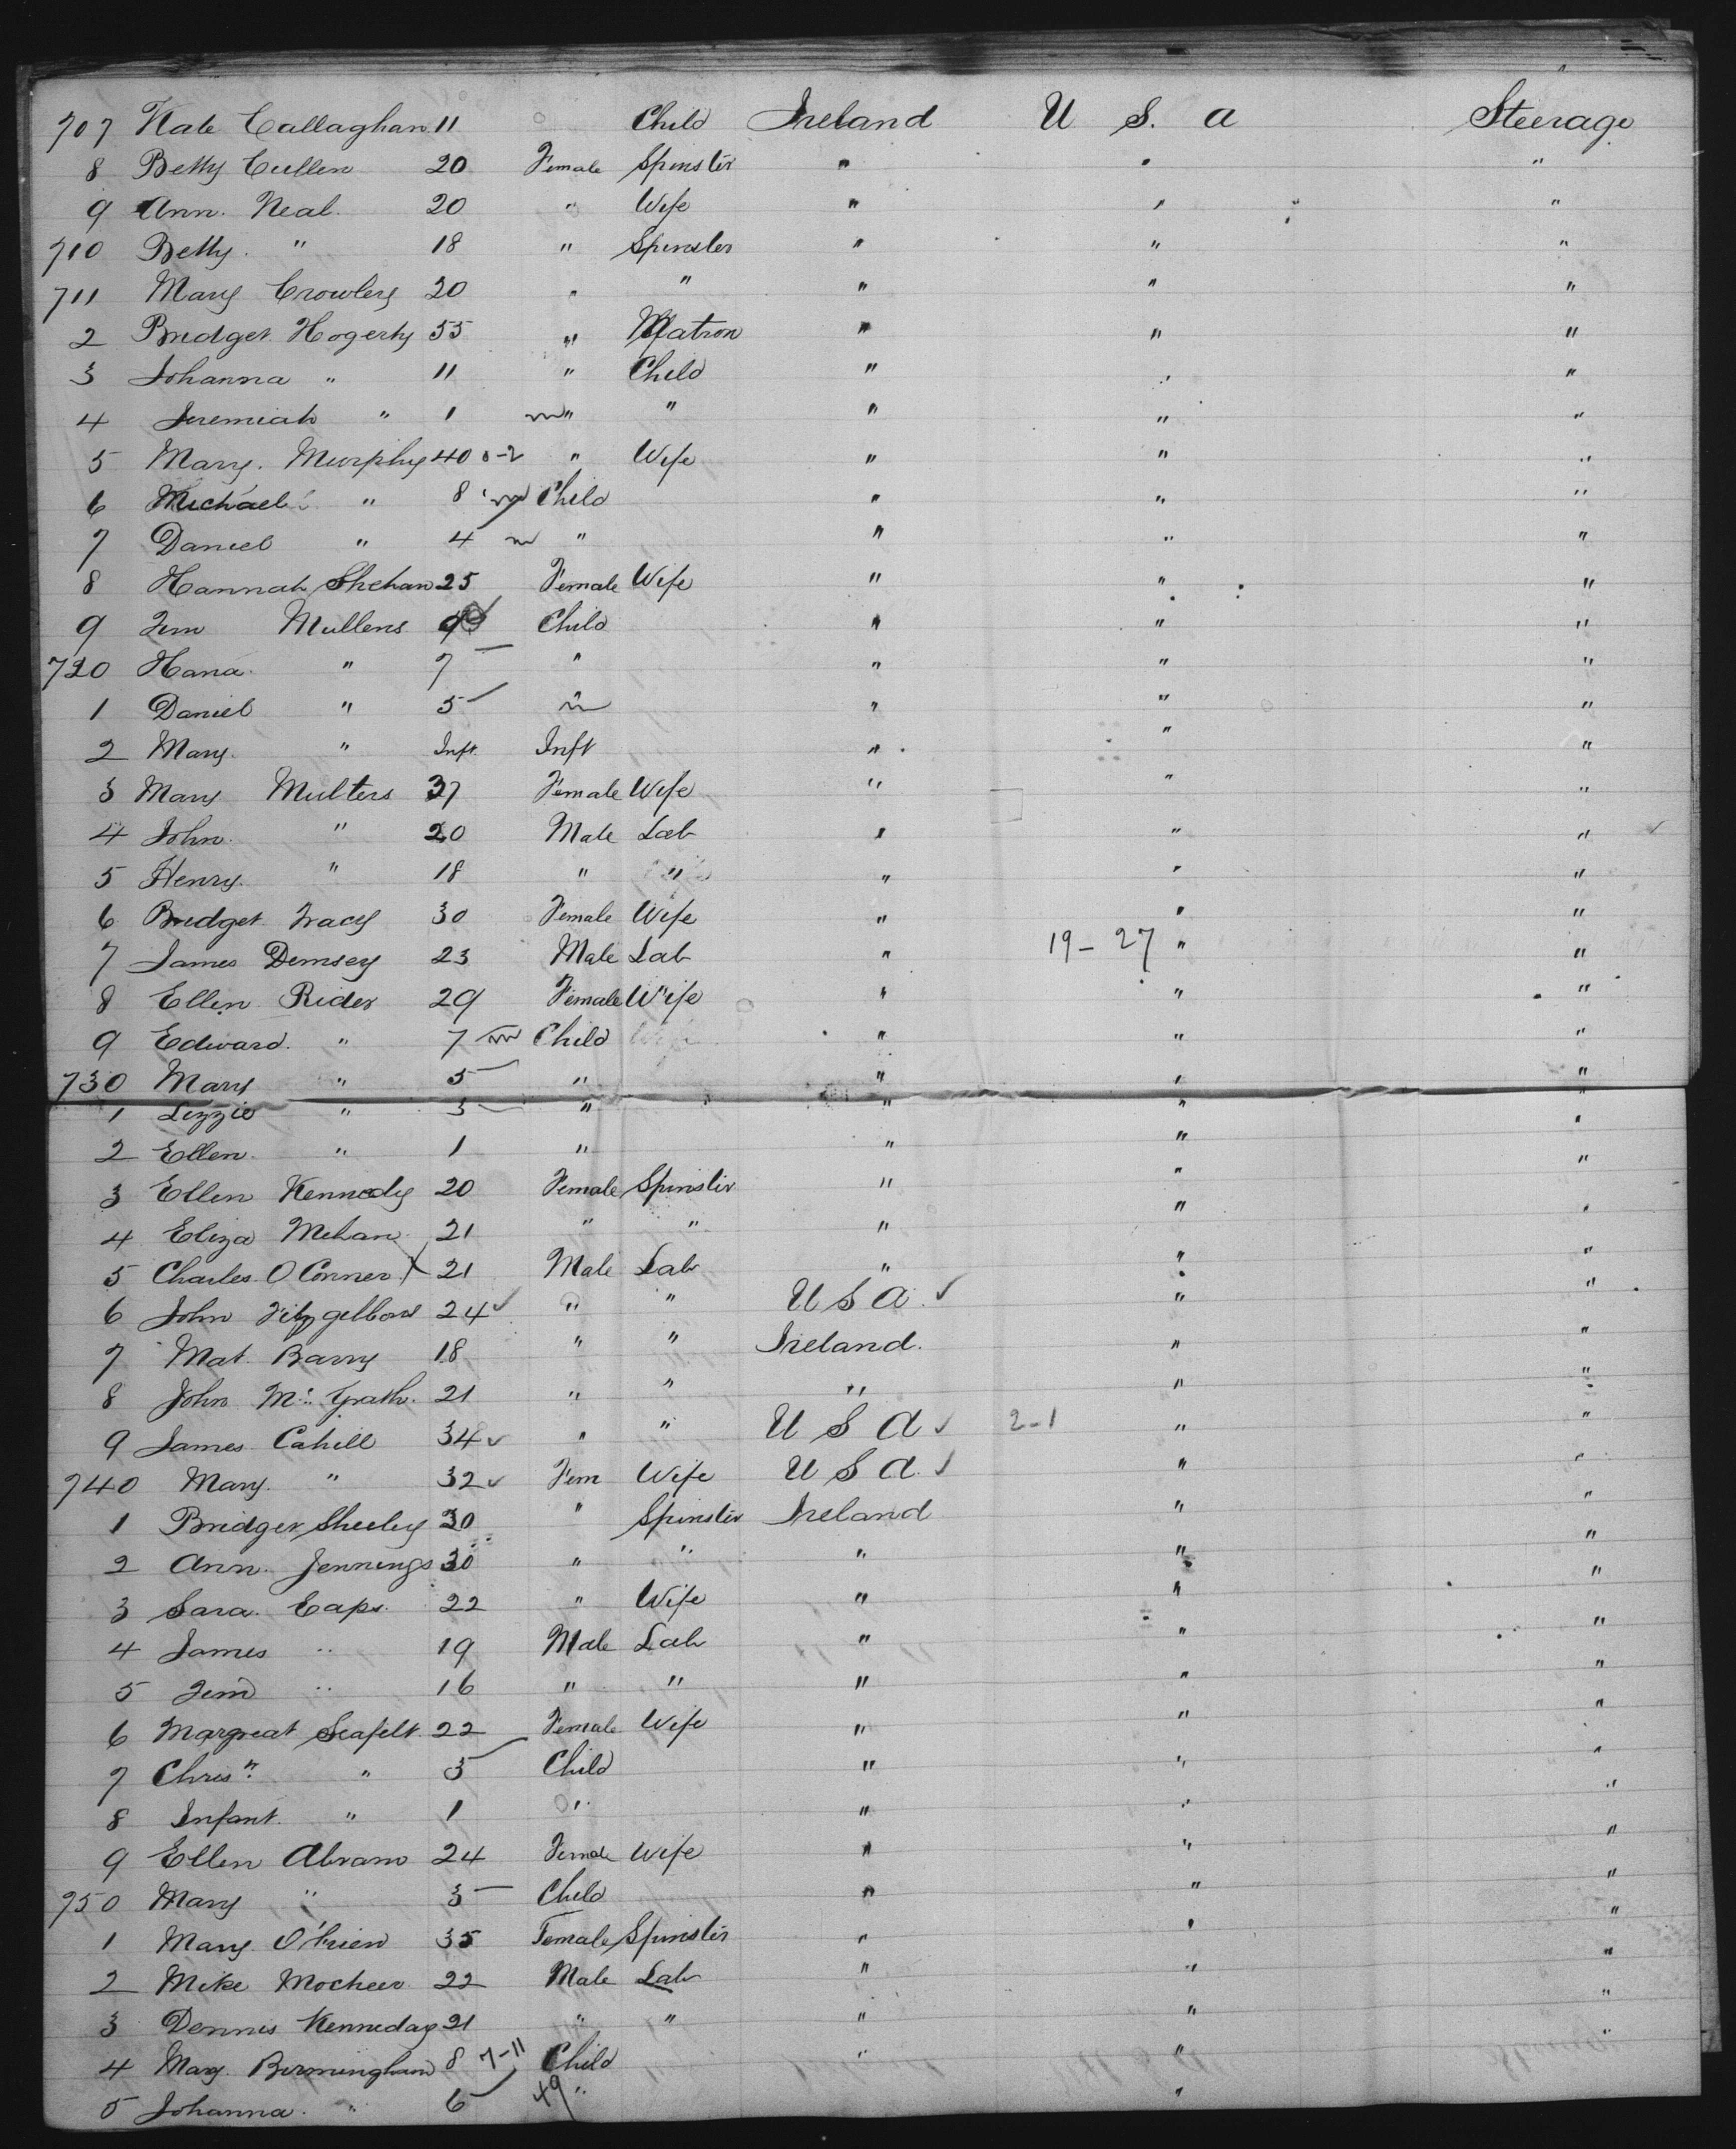 707 Kate Callaghan 11 Child Ireland U S. A Steerage
8 Betty Cullen 20 Female Spinster " " "
9 Ann. Neal. 20 " Wife " " "
710 Betty. " 18 " Spinster " " "
711 Mary Crowley 20 " " " " "
2 Bridget Hogerty 55 " Matron " " "
3 Johanna " 11 " Child " " "
4 Jeremiah " 1 m " " " " "
5 Mary. Murphy 40 0-2 " Wife " " "
6 Michael " 8 m Child " " "
7 Daniel " 4 m " " " "
8 Hannah Shehan 25 Female Wife " " "
9 Jim Mullens 9 Child " " "
720 Hana " 7 " " " "
1 Daniel " 5 m " " " "
2 Mary. " Inft. Inft " " "
3 Mary Multers 37 Female Wife " " "
4 John. " 20 Male Lab " " "
5 Henry. " 18 " " " " "
6 Bridget Tracy 30 Female Wife " " "
7 James Demsey 23 Male Lab " 19-27 " "
8 Ellen Rider 29 Female Wife " " "
9 Edward. " 7 m Child " " "
730 Mary " 5 " " " "
1 Lizzie " 3 " " " "
2 Ellen. " 1 " " " "
3 Ellen Kennedy 20 Female Spinster " " "
4 Eliza Mehan. 21 " " " " "
5 Charles O Conner X 21 Male Lab " " "
6 John 24 " " U S A " "
7 Mat. Barry 18 " " Ireland. " "
8 John Mc Grath. 21 " " " " "
9 James Cahill 34 " " U S A 2-1 " "
740 Mary. " 32 Fem Wife U S A. " "
1 Bridget Sheeley 30 " Spinster Ireland " "
2 Ann. Jennings 30 " " " " "
3 Sara. Eaps. 22 " Wife " " "
4 James " 19 Male Lab " " "
5 Jim " 16 " " " " "
6 Margreat Seafelt. 22 Female Wife " " "
7 Chrisn. " 3 Child " " "
8 Infant. " 1 " " " "
9 Ellen Abram 24 Female Wife " " "
750 Mary " 3 Child " " "
1 Mary. O'brien 35 Female Spinster " " "
2 Mike Mocheer 22 Male Lab " " "
3 Dennis Kenneday 21 " " " " "
4 Mary. Birmingham 8 7-11 Child " " "
5 Johanna. " 6 49 " "